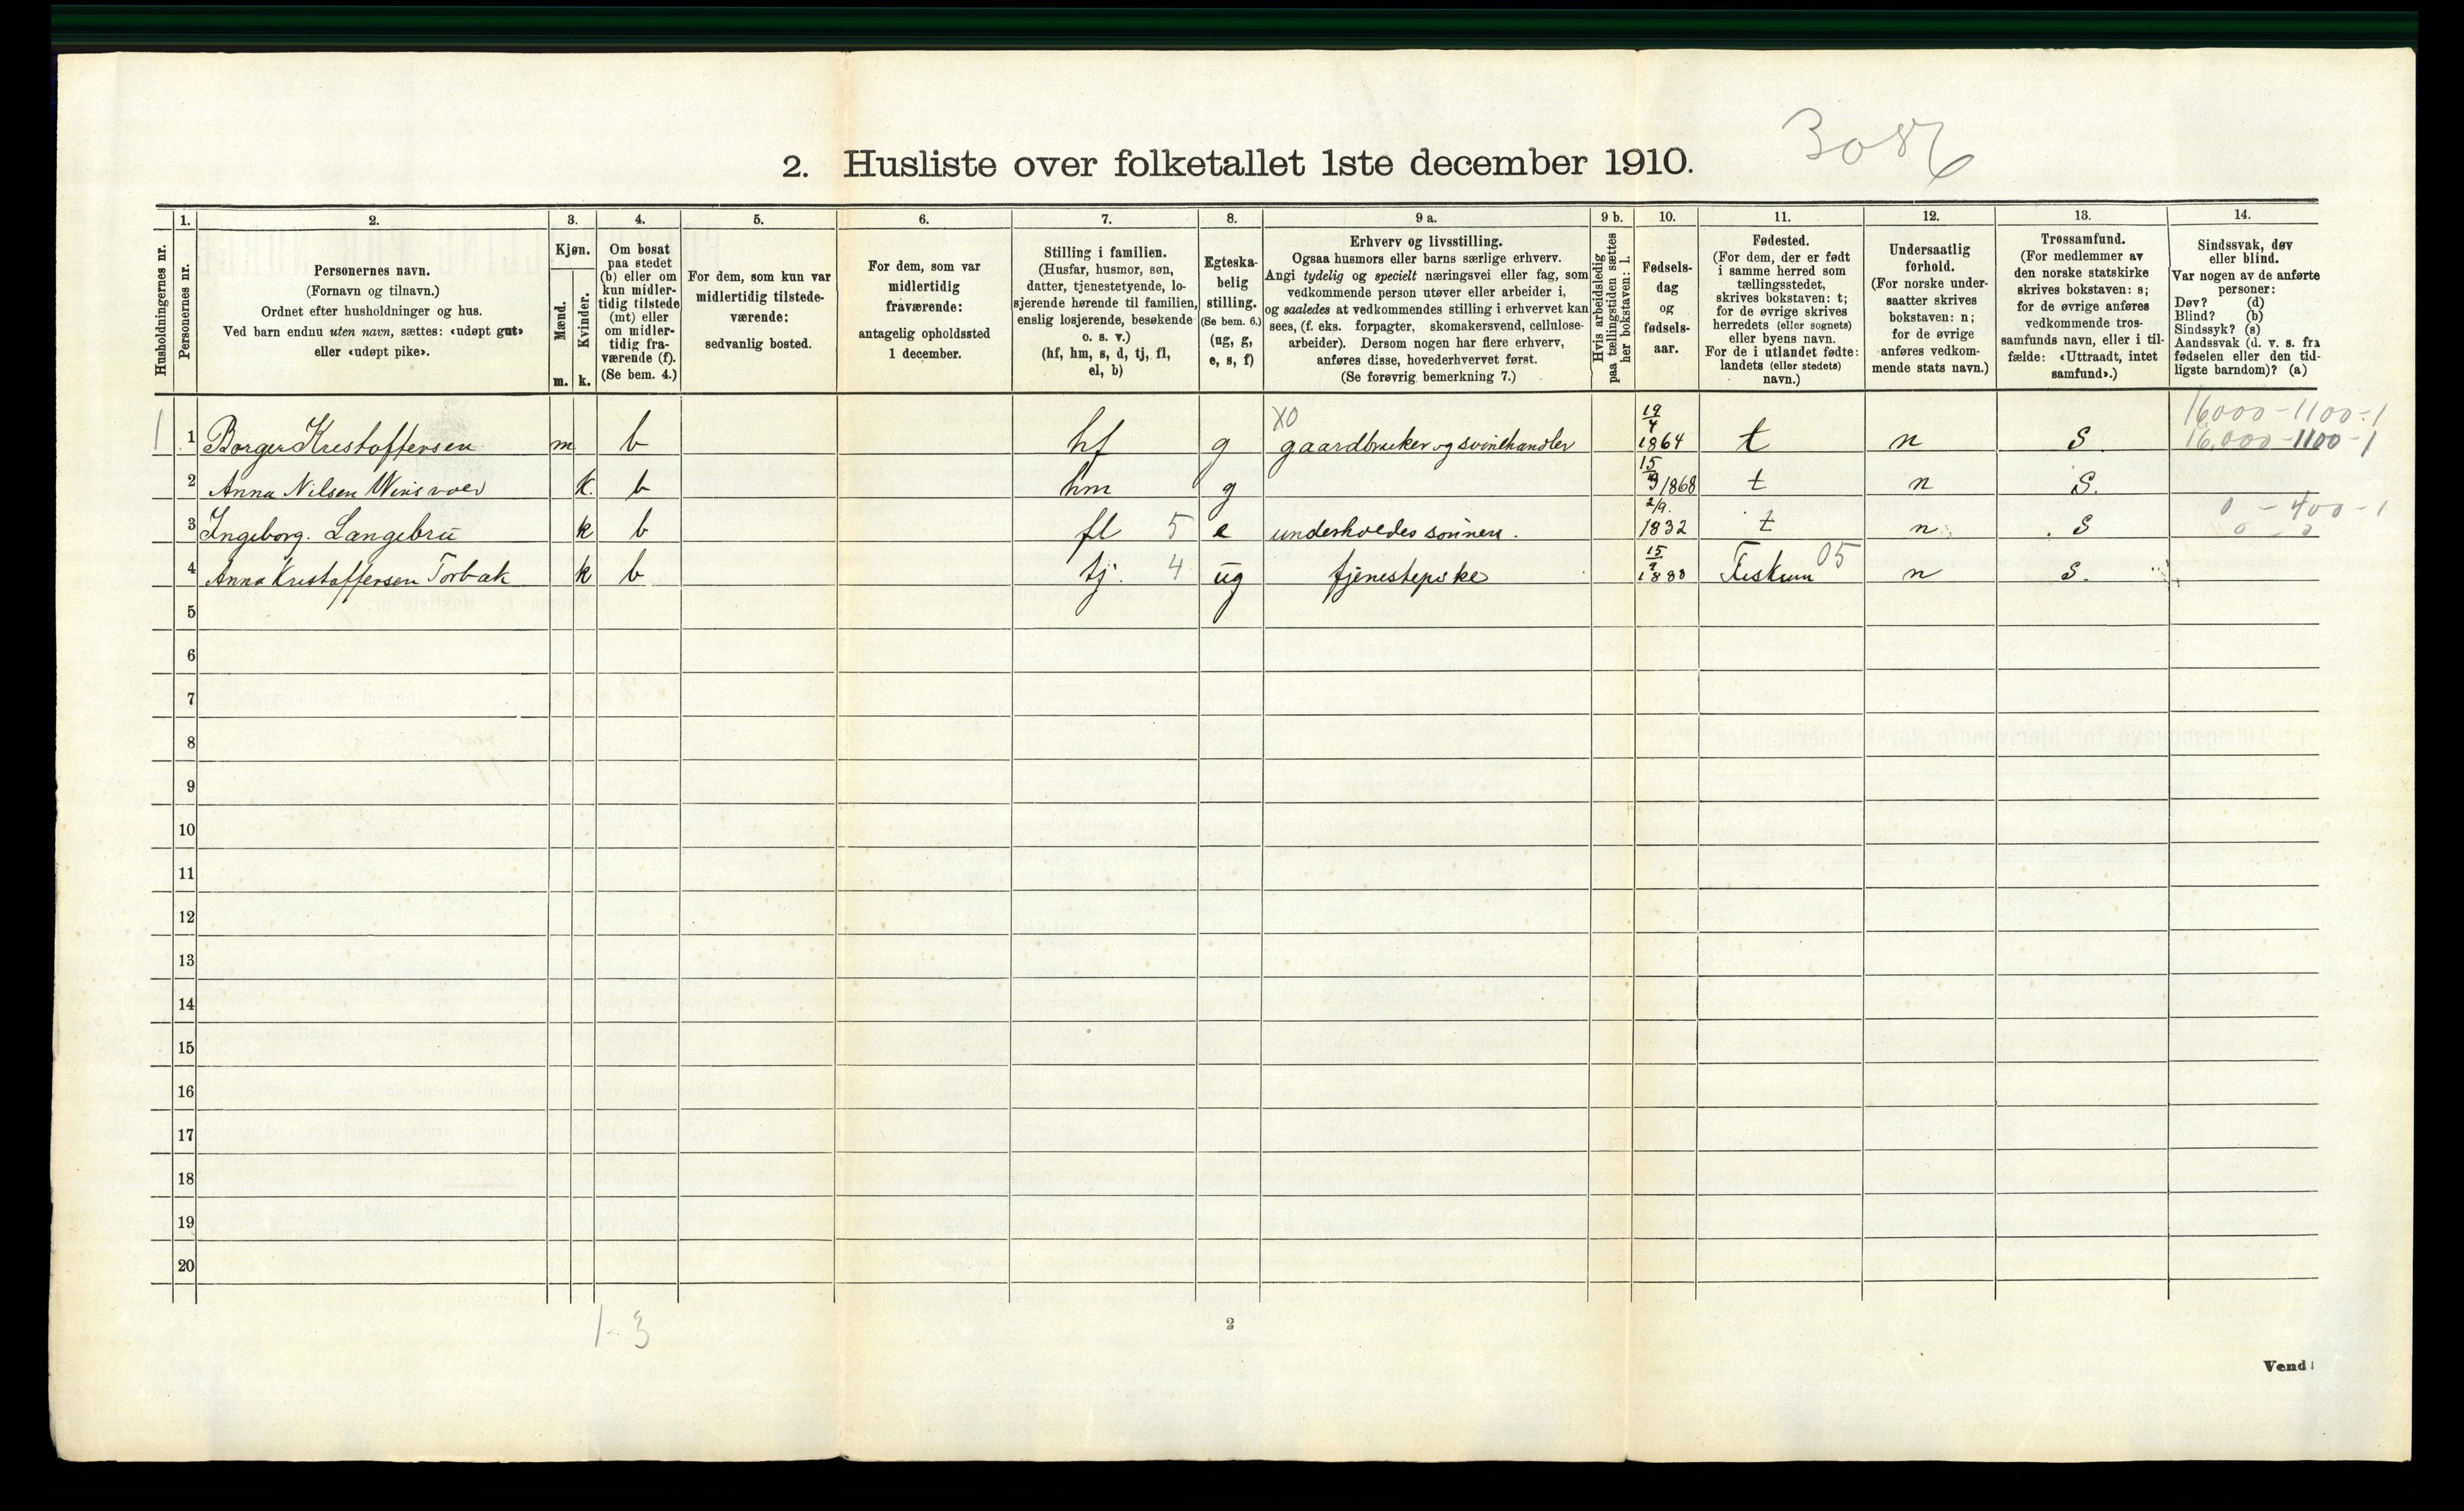 3086
2. Husliste over folketallet 1ste december 1910.
Husholdningernes nr.
1.
Personernes nr.
2.
Personernes navn.
(Fornavn og tilnavn.)
Ordnet efter husholdninger og hus.
Ved barn endnu uten navn, sættes: «udøpt gut»
eller «udøpt pike».
3.
Kjøn.
Mænd.
Kvinder.
m. k.
4.
Om bosat
paa stedet
(b) eller om
kun midler-
tidig tilstede
(mt) eller
om midler-
tidig fra-
værende (f).
(Se bem. 4.)
5.
For dem, som kun var
midlertidig tilstede-
værende:
sedvanlig bosted.
6.
For dem, som var
midlertidig
fraværende:
antagelig opholdssted
1 december.
7.
Stilling i familien.
(Husfar, husmor, søn,
datter, tjenestetyende, lo-
sjerende hørende til familien,
enslig losjerende, besøkende
o. s. v.)
(hf, hm, s, d, tj, fl,
el, b)
8.
Egteska-
belig
stilling.
(Se bem. 6.)
(ug, g,
e, s, f)
9 a.
Erhverv og livsstilling.
Ogsaa husmors eller barns særlige erhverv.
Angi tydelig og specielt næringsvei eller fag, som
vedkommende person utøver eller arbeider i,
og saaledes at vedkommendes stilling i erhvervet kan
sees, (f. eks. forpagter, skomakersvend, cellulose-
arbeider). Dersom nogen har flere erhverv,
anføres disse, hovederhvervet først.
(Se forøvrig bemerkning 7.)
9 b.
Hvis arbeidsledig
paa tællingstiden sættes
her bokstaven: l.
10.
Fødsels-
dag
og
fødsels-
aar.
11.
Fødested.
(For dem, der er født
i samme herred som
tællingsstedet,
skrives bokstaven: t;
for de øvrige skrives
herredets (eller sognets)
eller byens navn.
For de i utlandet fødte:
landets (eller stedets)
navn.)
12.
Undersaatlig
forhold.
(For norske under-
saatter skrives
bokstaven: n;
for de øvrige
anføres vedkom-
mende stats navn.)
13.
Trossamfund.
(For medlemmer av
den norske statskirke
skrives bokstaven: s;
for de øvrige anføres
vedkommende tros-
samfunds navn, eller i til-
fælde: «Uttraadt, intet
samfund».)
14.
Sindssvak, døv
eller blind.
Var nogen av de anførte
personer:
Døv? (d)
Blind? (b)
Sindssyk? (s)
Aandssvak (d. v. s. fra
fødselen eller den tid-
ligste barndom)? (a)
XO 16000-1100-1
1 1 Borger Kristoffersen m b hf g gaardbruker og svinehandler 19/4 1864 t n S 16,000-1100-1
2 Anna Nilsen k. b hm g 15/3 1868 t n S.
3 Ingeborg. Langebru k b fl 5 e underholdes sønnen. 2/9. 1832 t n S 0-400-1
4 Anna Kristoffersen Torbak k b tj. 4 ug tjenestepike Fiskum 05 n S.
5
6
7
8
9
10
11
12
13
14
15
16
17
18
19
20
1-3
2
Vend!